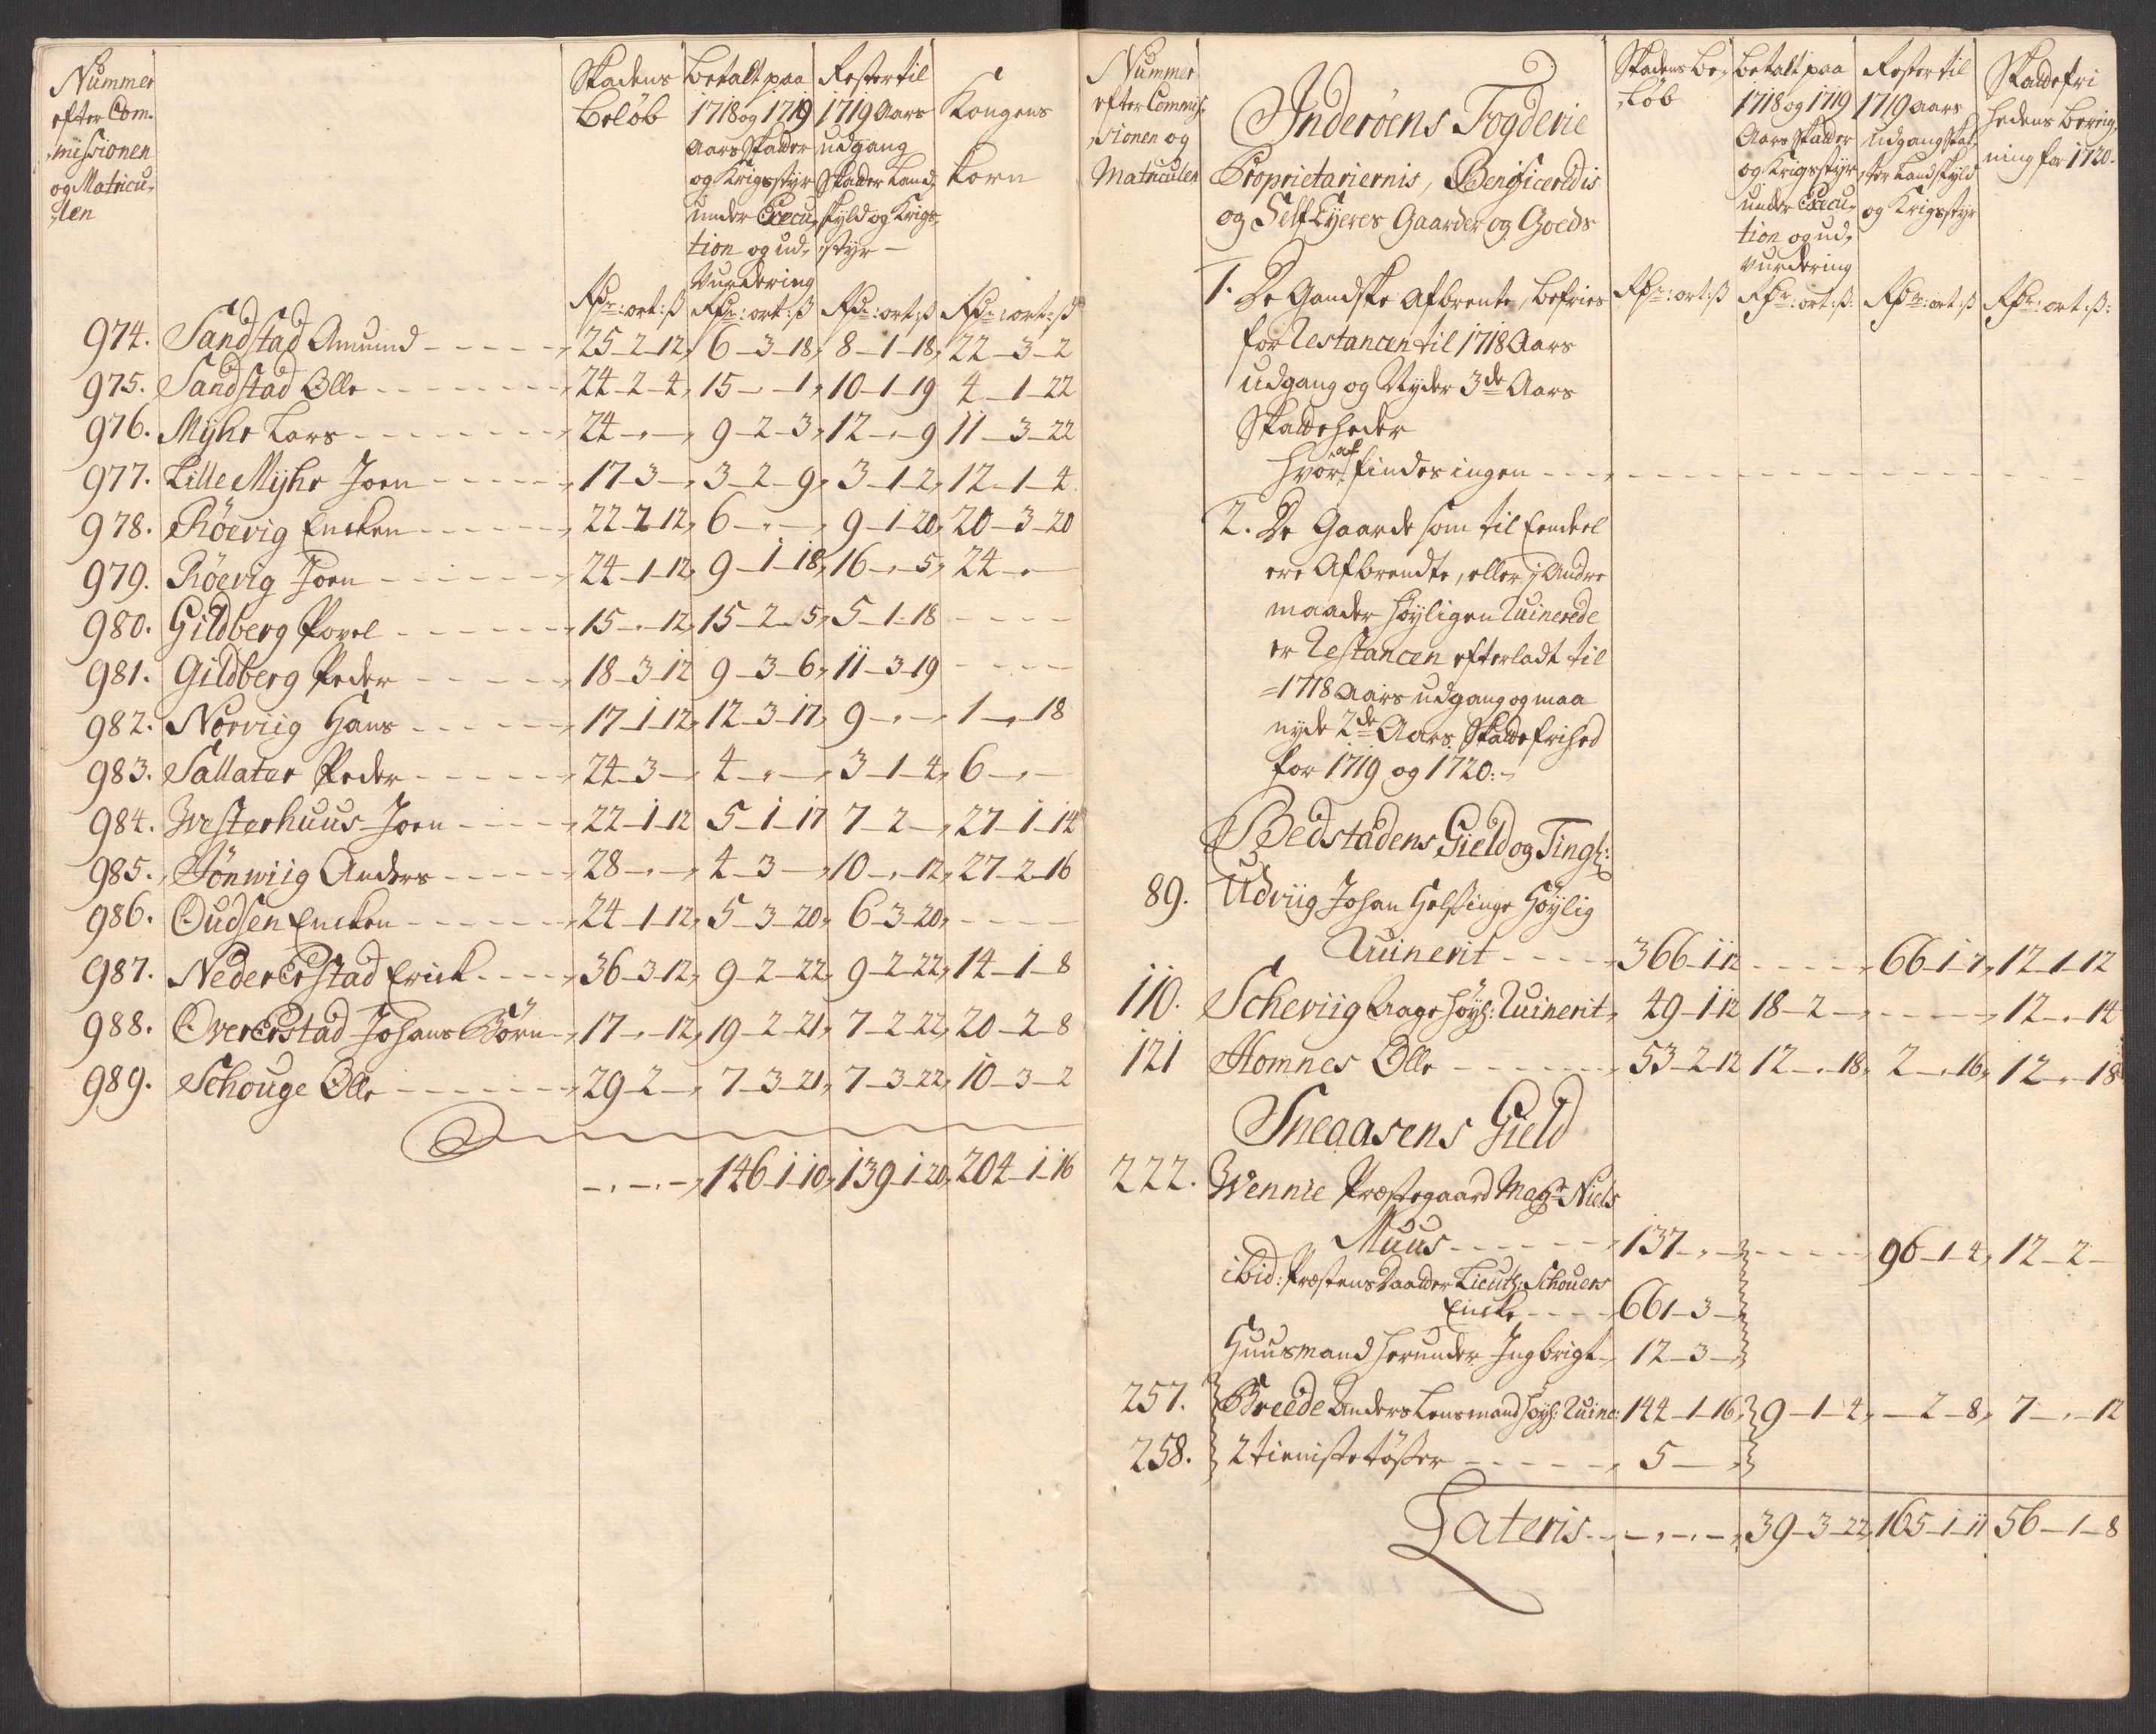 Nummer
efter Com¬
missionen
og Matricu¬
len
Skadens
Beløb
Betalt paa
1718 og 1719
Aars Skatter
og Krigsstyr
under Execu¬
tion og ud¬
Vurdering
Rester til
1719 Aars
udgang
Skatter Land¬
skyld og Krigs¬
styr –
Kongens
Korn
Rdr: ort: ß Rdr: ort: ß Rdr: ort: ß Rdr: ort: ß
974. Sandstad Amund - - - 25-2-12, 6-3-18, 8-1-18, 22-3-2
975. Sandstad Olle - - - 24-2-4, 15-"-1, 10-1-19 4-1-22
976. Myhr Lars - - - 24-"-, 9-2-3, 12-"-9 11-3-22
977. Lille Myhr Joen - - - 17-3-, 3-2-9, 3-1-2, 12-1-4
978. Röevig Encken - - - 22-2-12, 6-"-, 9-1-20, 20-3-20
979. Röevig Joen - - - 24-1-12, 9-1-18, 16-"-5, 24-"-
980. Gildberg Povel - - - 15-"-12, 15-2-5, 5-1-18 - - -
981. Gildberg Peder - - - 18-3-12 9-3-6, 11-3-19 - - -
982. Norviig Hans - - - 17-1-12, 12-3-17, 9-"-, 1-"-18
983. Sallater Peder - - - 24-3-, 4-"-, 3-1-4, 6-"-
984. Westerhuus Joen - - - 22-1-12 5-1-17 7-2-, 27-1-14
985. Tönwiig Anders - - - 28-"-, 4-3-, 10-"-12, 27-2-16
986. Oudsen Encken - - - 24-1-12, 5-3-20, 6-3-20, - - -
987. Neder Erstad Erick - - - 36-3-12, 9-2-22, 9-2-22, 14-1-8
988. Over Erstad Johans Börn - 17-"-12, 19-2-21, 7-2-22, 20-2-8
989. Schouge Olle - - - 29-2-, 7-3-21, 7-3-22, 10-3-2
-"-"-, 146-1-10, 139-1-20, 204-1-16
Nummer
efter Commis¬
sionen og
Matriculen
Inderöens Fogderie
Proprietariernis, Beneficeredis
og Self Eyeres Gaarder og Goeds
Skadens Be¬
løb
Betalt paa
1718 og 1719
Aars Skatter
og Krigsstyr
under Execu¬
tion og ud¬
vurdering
Rester til
1719 aars
udgang Skat¬
ter Landskyld
og Krigsstyr
Skattefri
hedens Bereig¬
ning for 1720.
Rdr: ort: ß Rdr: ort: ß: Rdr: ort: ß Rdr: ort: ß:
1. De Gandske Afbrente, befries
for Restancen til 1718 Aars
udgang og Nyder 3de Aars
Skatteheder
hvor af findes ingen - - -
2. De Gaarde som til Eendeel
ere Afbrendte, eller j Andre
maader høyligen Ruinerede
er Restancen efterladt til
1718 Aars udgang og maa
nyde 2de Aars Skattefrihed
for 1719 og 1720: -
Bedstadens Gield og Tingl:
89. Udviig Johan Helsinge Höylig
Ruinerit - - - 366-1-12 - - - 66-1-7, 12-1-12
110. Scheviig Aage höyl: Ruinerit, 49-1-12 18-2-, - - - 12-"-14
121 Homnes Olle - - - 53-2-12 12-"-18, 2-"-16, 12-"-18
Sneaasens Gield
222. Wennie Præstegaard Magr. Niels
Muus - - - 137-"- - - - 96-1-4, 12-2-
ibid: Præstens Daatter Lieuth: Schouers
Encke - - - 661-3-
Huusmand herunder Ingbrigt, 12-3-
257. Breede Anders Lensmand höyl: Ruine: 144-1-16, 9-1-4, -2-8, 7-"-12
258. 2 tienistetösser - - - 5-
Lateris - - - 39-3-22, 165-1-11 56-1-8